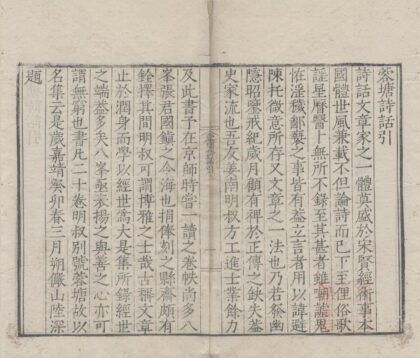 蓉塘詩話引
詩話文章家之一體莫盛於宋賢經術事本
國體世風兼載不但論詩而已下至俚俗歌
謠星曆醫卜無所不錄至其甚者雖嘲謔鬼
怪淫穢鄙褻之事皆有益立言者用以諱避
陳托微意所存又文章之一法也乃若發幽
隱昭鑒戒紀歲月顧有裨於正傳之缺失蓋
史家流也吾友姜南明叔方工進士業餘力
及此書予在京師時嘗一讀之卷帙尚多八
峯張君國鎮之令海也捐俸刻之縣齋頗有
銓擇其間明叔可謂博雅之士哉古稱文章
止於潤身而學以經世為大是集所錄經世
之端益多矣八峯亟表揚之與善之心亦可
謂無窮也書凡二十卷明叔別號蓉塘故以
名集云是歲嘉靖癸卯春三月朔儼山陸深
題